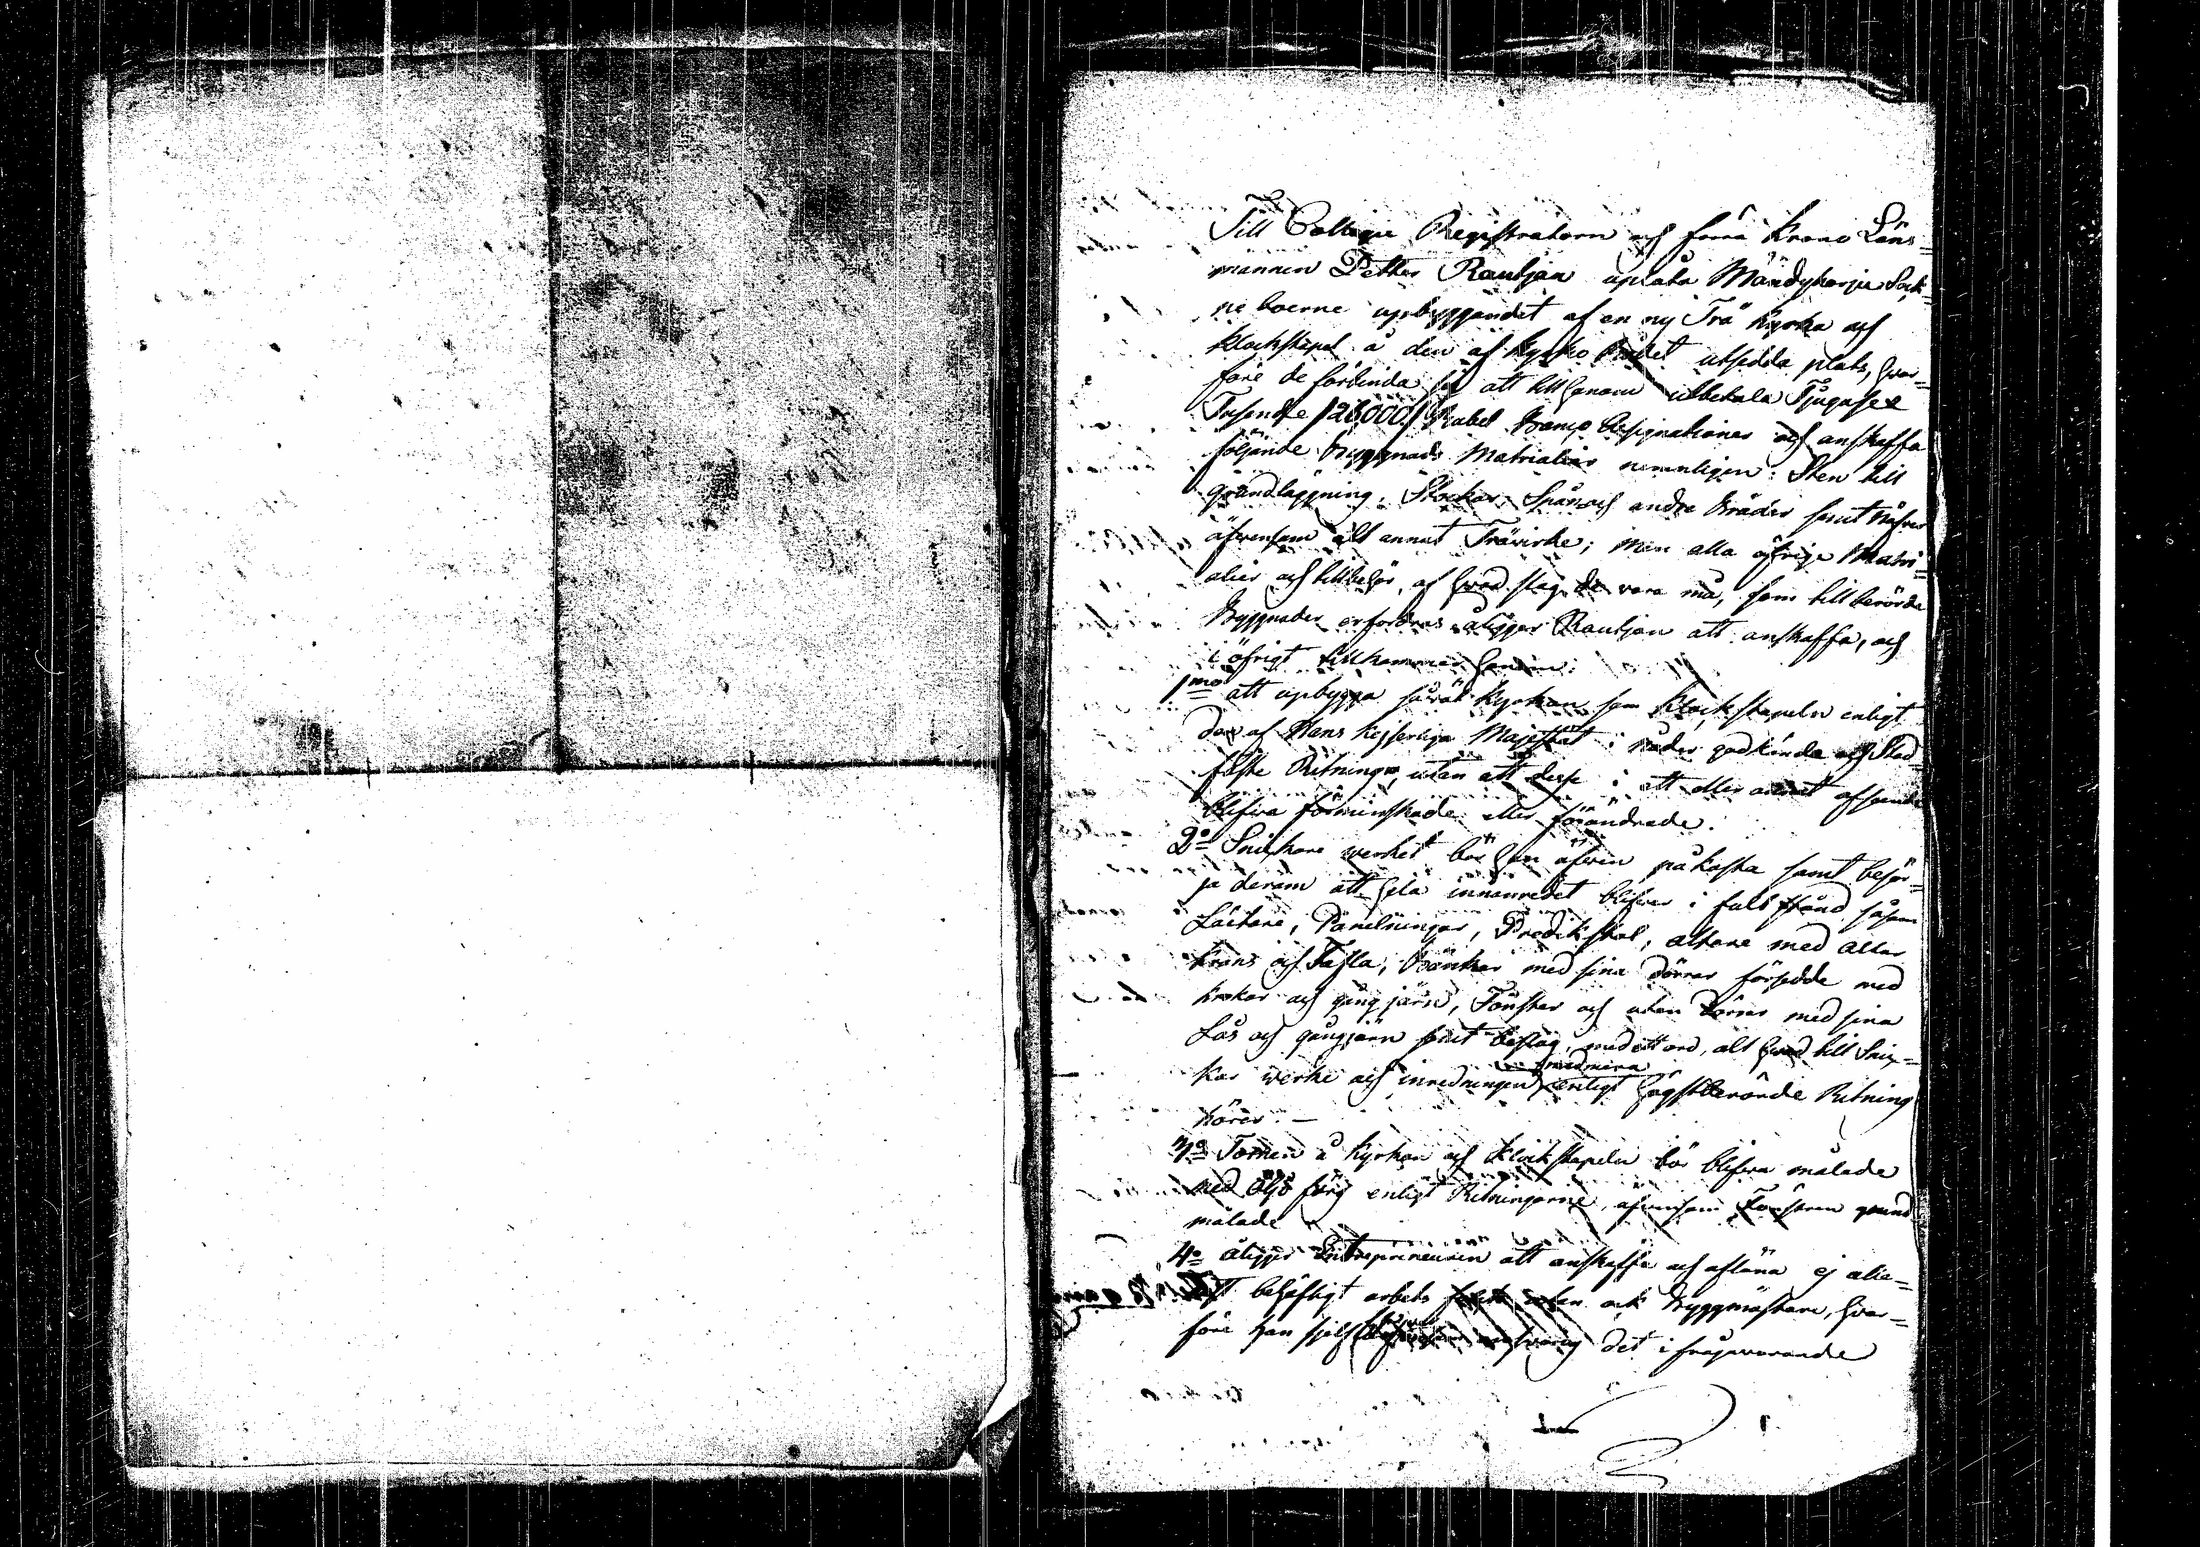 Till Collegie Registratorn och forra Krono Läns=
mannen Petter Rautjan uplåta Mändyharju Sock=
ne boerne upbyggandet af en ny Trä Kyrka och
Klockstapel å den af Kyrko Rådet utsedda plats, hvar=
före de förbinda sig att till honom utbetala Tjugusex
Tusende /26,000/ Rubel Banco Assignationer och anskaffa
följande Byggnads Matrialier nemnligen: Sten till
grundläggning, Stockar, Spån och andra Bräder samt Näfver
äfvensom alt annat Trävirke; men alla öfrige Matri=
alier och tillbehör, af hvad slag de vara må, som till berörde
Byggnader erfordras åligger Rautjan att anskaffa, och
i öfrigt tillkommer honom:
1mo att upbygga såväl Kyrkan som Klockstapeln enligt
de af Hans Kejserliga Majestät i nåder godkända och Stad=
fäste Ritningar, utan att desse i ett eller annat afseende
blifva förminskade eller förändrade.
2o Snickare werket bör han äfven påkosta samt besör=
ja derom att hela innanredet blifver i fullt stånd såsom
Lächtare, Panelningar, Predikstol, altare med altar
krans och Tafla, Bänkar med sina dörrar försedde med
krokar och gångjärn, Fönster och utan dörrar med sina
Lås och gångjärn samt beslag, med ett ord, alt hvad till Snic=
kar werke och inredningen med mera enligt högstberörde Ritning
hörer. —
3o Tornen å Kyrkan och Klockstapeln bör blifva målade
med Oljo färg enligt Ritningarne, äfvensom Fönstren grund
målade
4o åligger Entrepreneuren att anskaffa och aflöna ej alle=
nast behöfligt arbets utan ock Byggmästare, hvar=
före han sjelf ansvarig det ifrågavarande